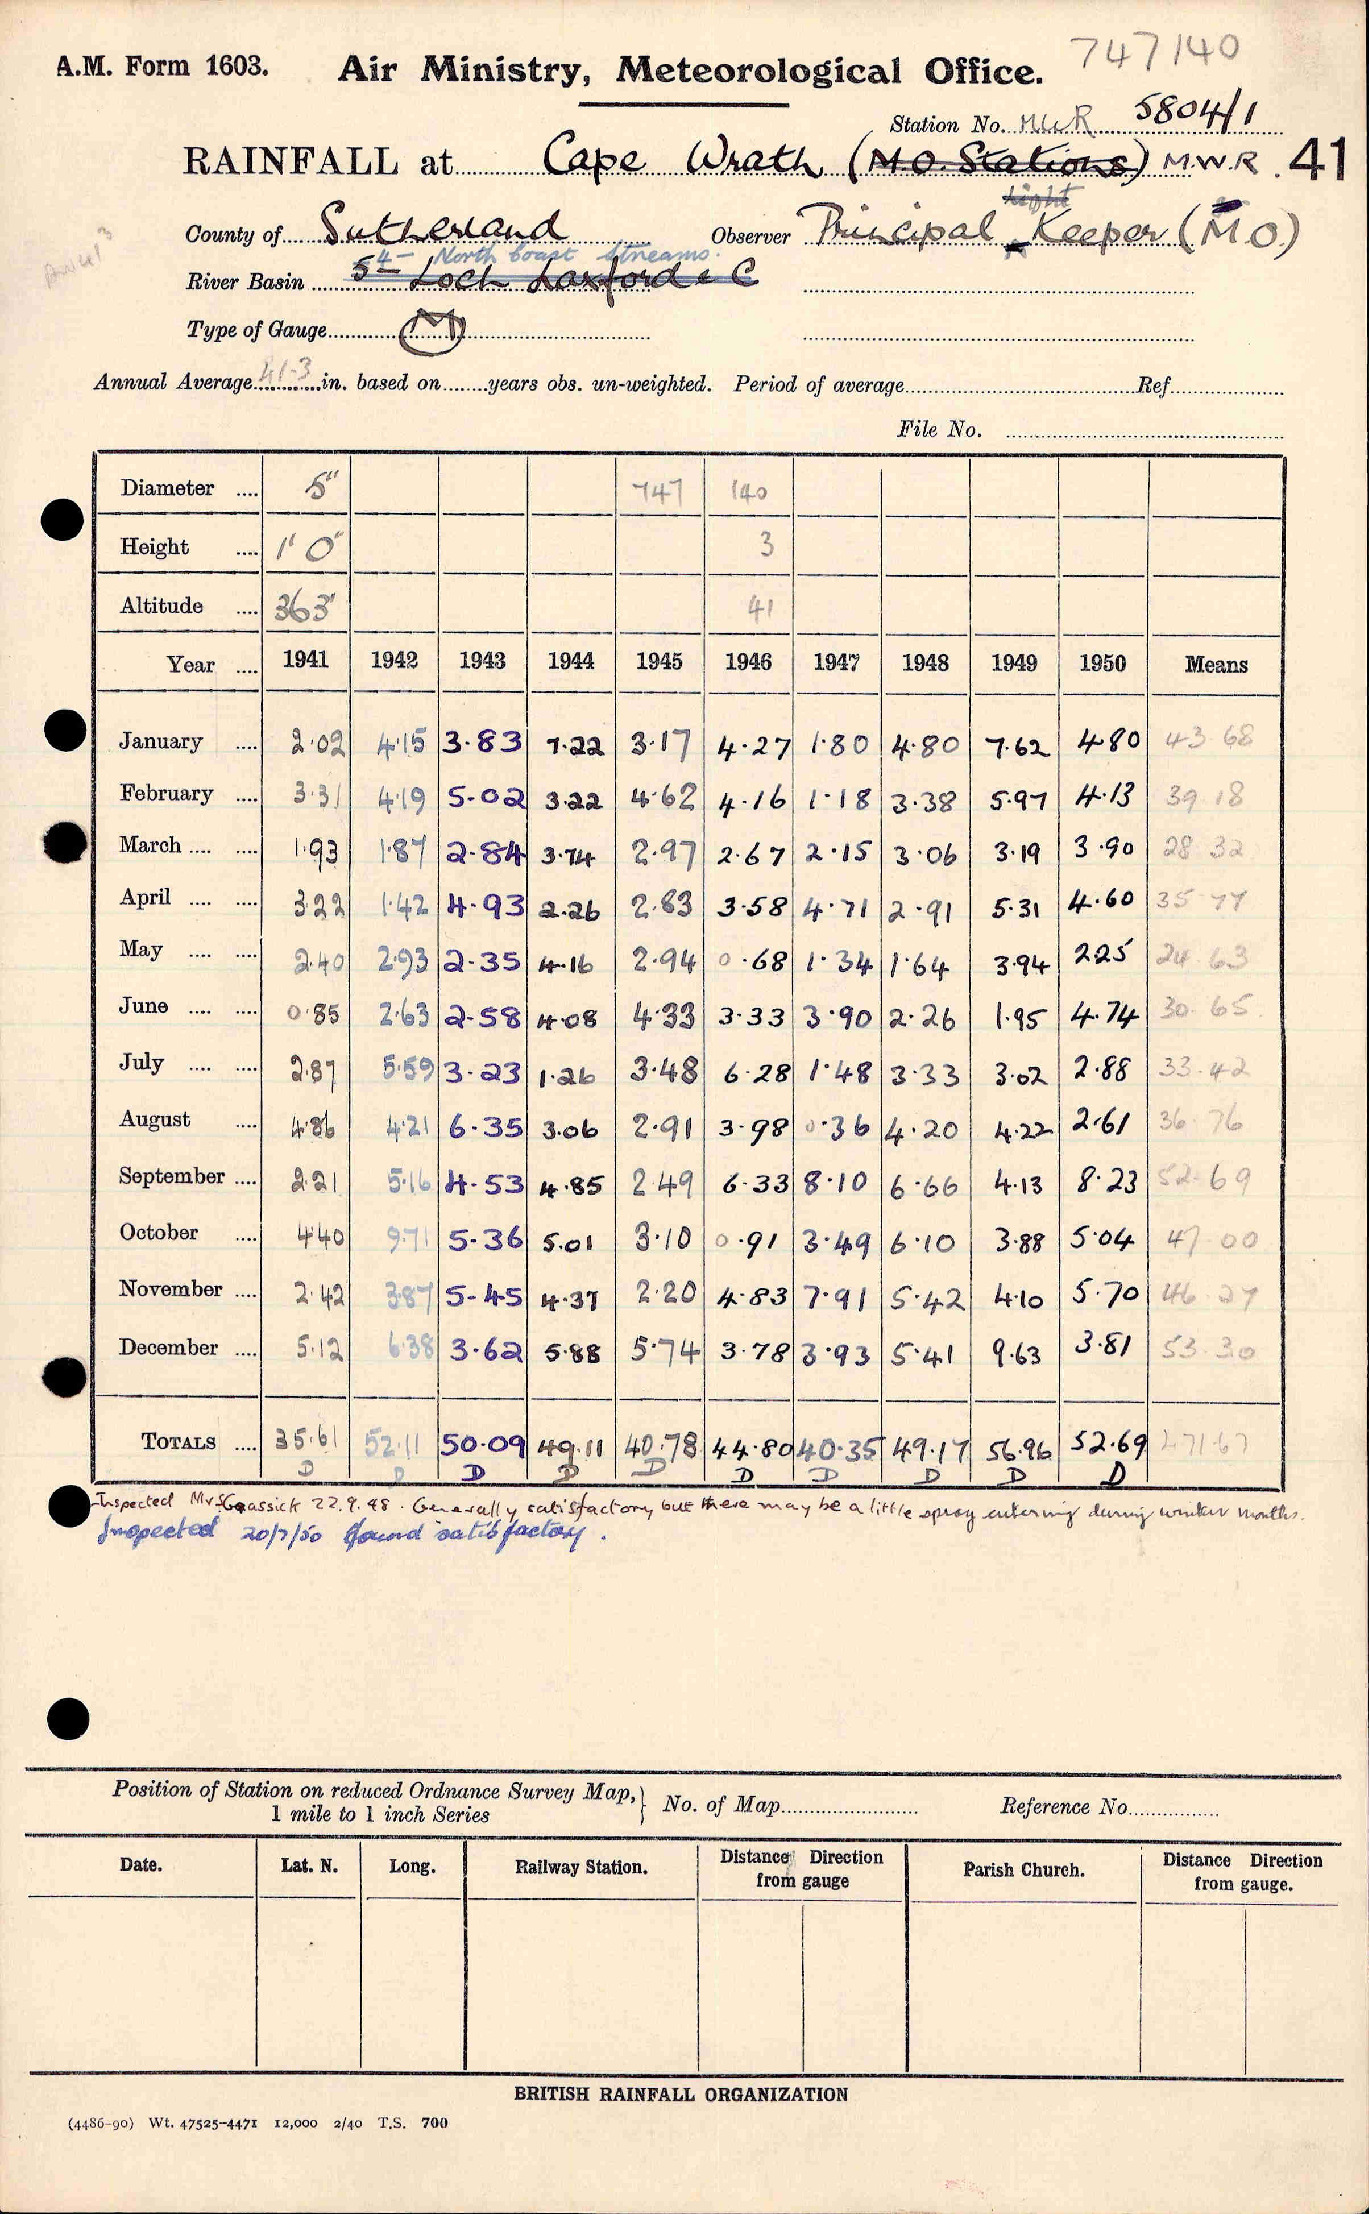 747140
A.M. Form 1603. Air Ministry, Meteorological Office.
Station No. MWR 5804/1
RAINFALL at Cape Wrath (M.O. Stations) M.W.R. 41
Light
County of Sutherland Observer Principal Keeper (M.O.)
4- North Coast Streams.
River Basin 5- Loch Laxford & C
Type of Gauge M
Annual Average 41.3 in. based on years obs. un-weighted. Period of average Ref
File No.
Diameter .... 5" 747 140
Height .... 1' 0" 3
Altitude .... 363' 41
Year .... 1941 1942 1943 1944 1945 1946 1947 1948 1949 1950 Means
January .... 2.02 4.15 3.83 7.22 3.17 4.27 1.80 4.80 7.62 4.80 43.68
February .... 3.31 4.19 5.02 3.22 4.62 4.16 1.18 3.38 5.97 4.13 39.18
March .... .... 1.93 1.87 2.84 3.74 2.97 2.67 2.15 3.06 3.19 3.90 28.32
April .... .... 3.22 1.42 4.93 2.26 2.83 3.58 4.71 2.91 5.31 4.60 35.77
May .... .... 2.40 2.93 2.35 4.16 2.94 0.68 1.34 1.64 3.94 2.25 24.63
June .... .... 0.85 2.63 2.58 4.08 4.33 3.33 3.90 2.26 1.95 4.74 30.65
July .... .... 2.87 5.59 3.23 1.26 3.48 6.28 1.48 3.33 3.02 2.88 33.42
August .... 4.86 4.21 6.35 3.06 2.91 3.98 0.36 4.20 4.22 2.61 36.76
September .... 2.21 5.16 4.53 4.85 2.49 6.33 8.10 6.66 4.13 8.23 52.69
October .... 4.40 9.71 5.36 5.01 3.10 0.91 3.49 6.10 3.88 5.04 47.00
November .... 2.42 3.87 5.45 4.37 2.20 4.83 7.91 5.42 4.10 5.70 46.27
December .... 5.12 6.38 3.62 5.88 5.74 3.78 3.93 5.41 9.63 3.81 53.30
TOTALS .... 35.61 52.11 50.09 49.11 40.78 44.80 40.35 49.17 56.96 52.69 471.67
D D D D D D D D D D
Inspected Mrs Grassick 22.9.48. Generally satisfactory but there may be a little spray entering during winter months.
Inspected 20/7/50 found satisfactory.
Position of Station on reduced Ordnance Survey Map, 1 mile to 1 inch Series } No. of Map Reference No.
Date. Lat. N. Long. Railway Station. Distance Direction from gauge Parish Church. Distance Direction from gauge.
BRITISH RAINFALL ORGANIZATION
(4486-90) Wt. 47525-4471 12,000 2/40 T.S. 700